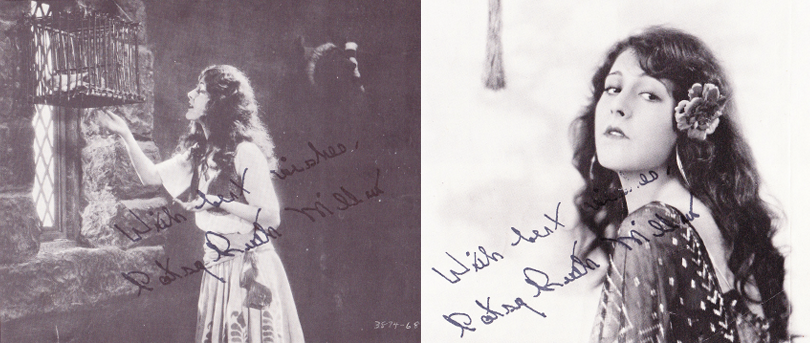 With best wishes,
Patsy Ruth Miller
3874-68
With best wishes,
Patsy Ruth Miller